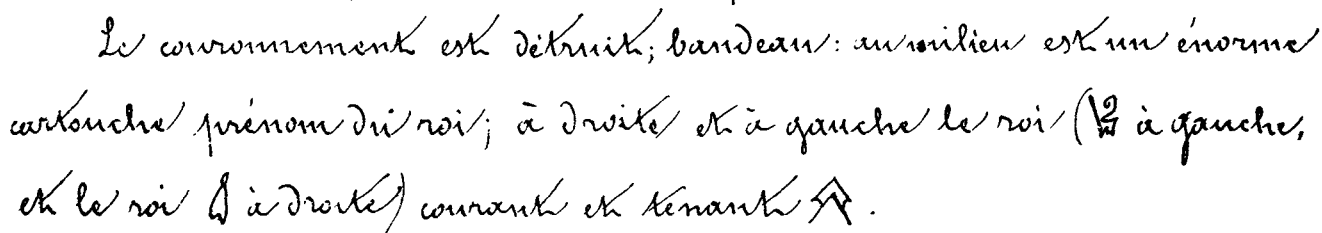 Le couronnement est détruit; bandeau: au milieu est un énorme
cartouche prénom du roi; à droite et à gauche le roi ( à gauche,
et le roi à droite) courant et tenant .